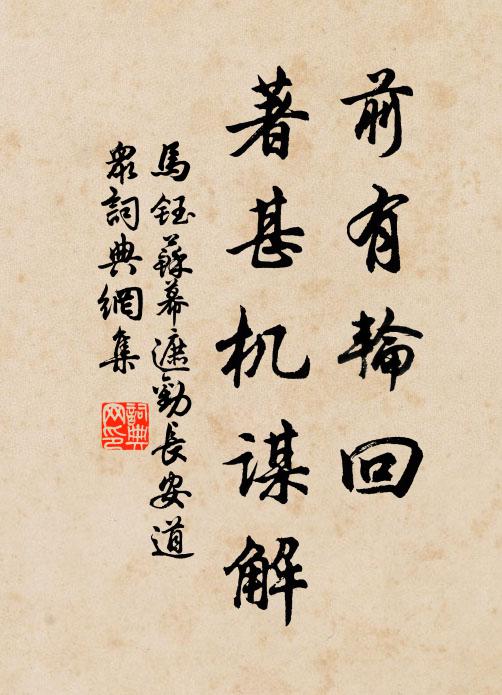 前有輪回
著甚机謀解
馬鈺蘇幕遮勸長安道
眾詞典網集
詞典网印